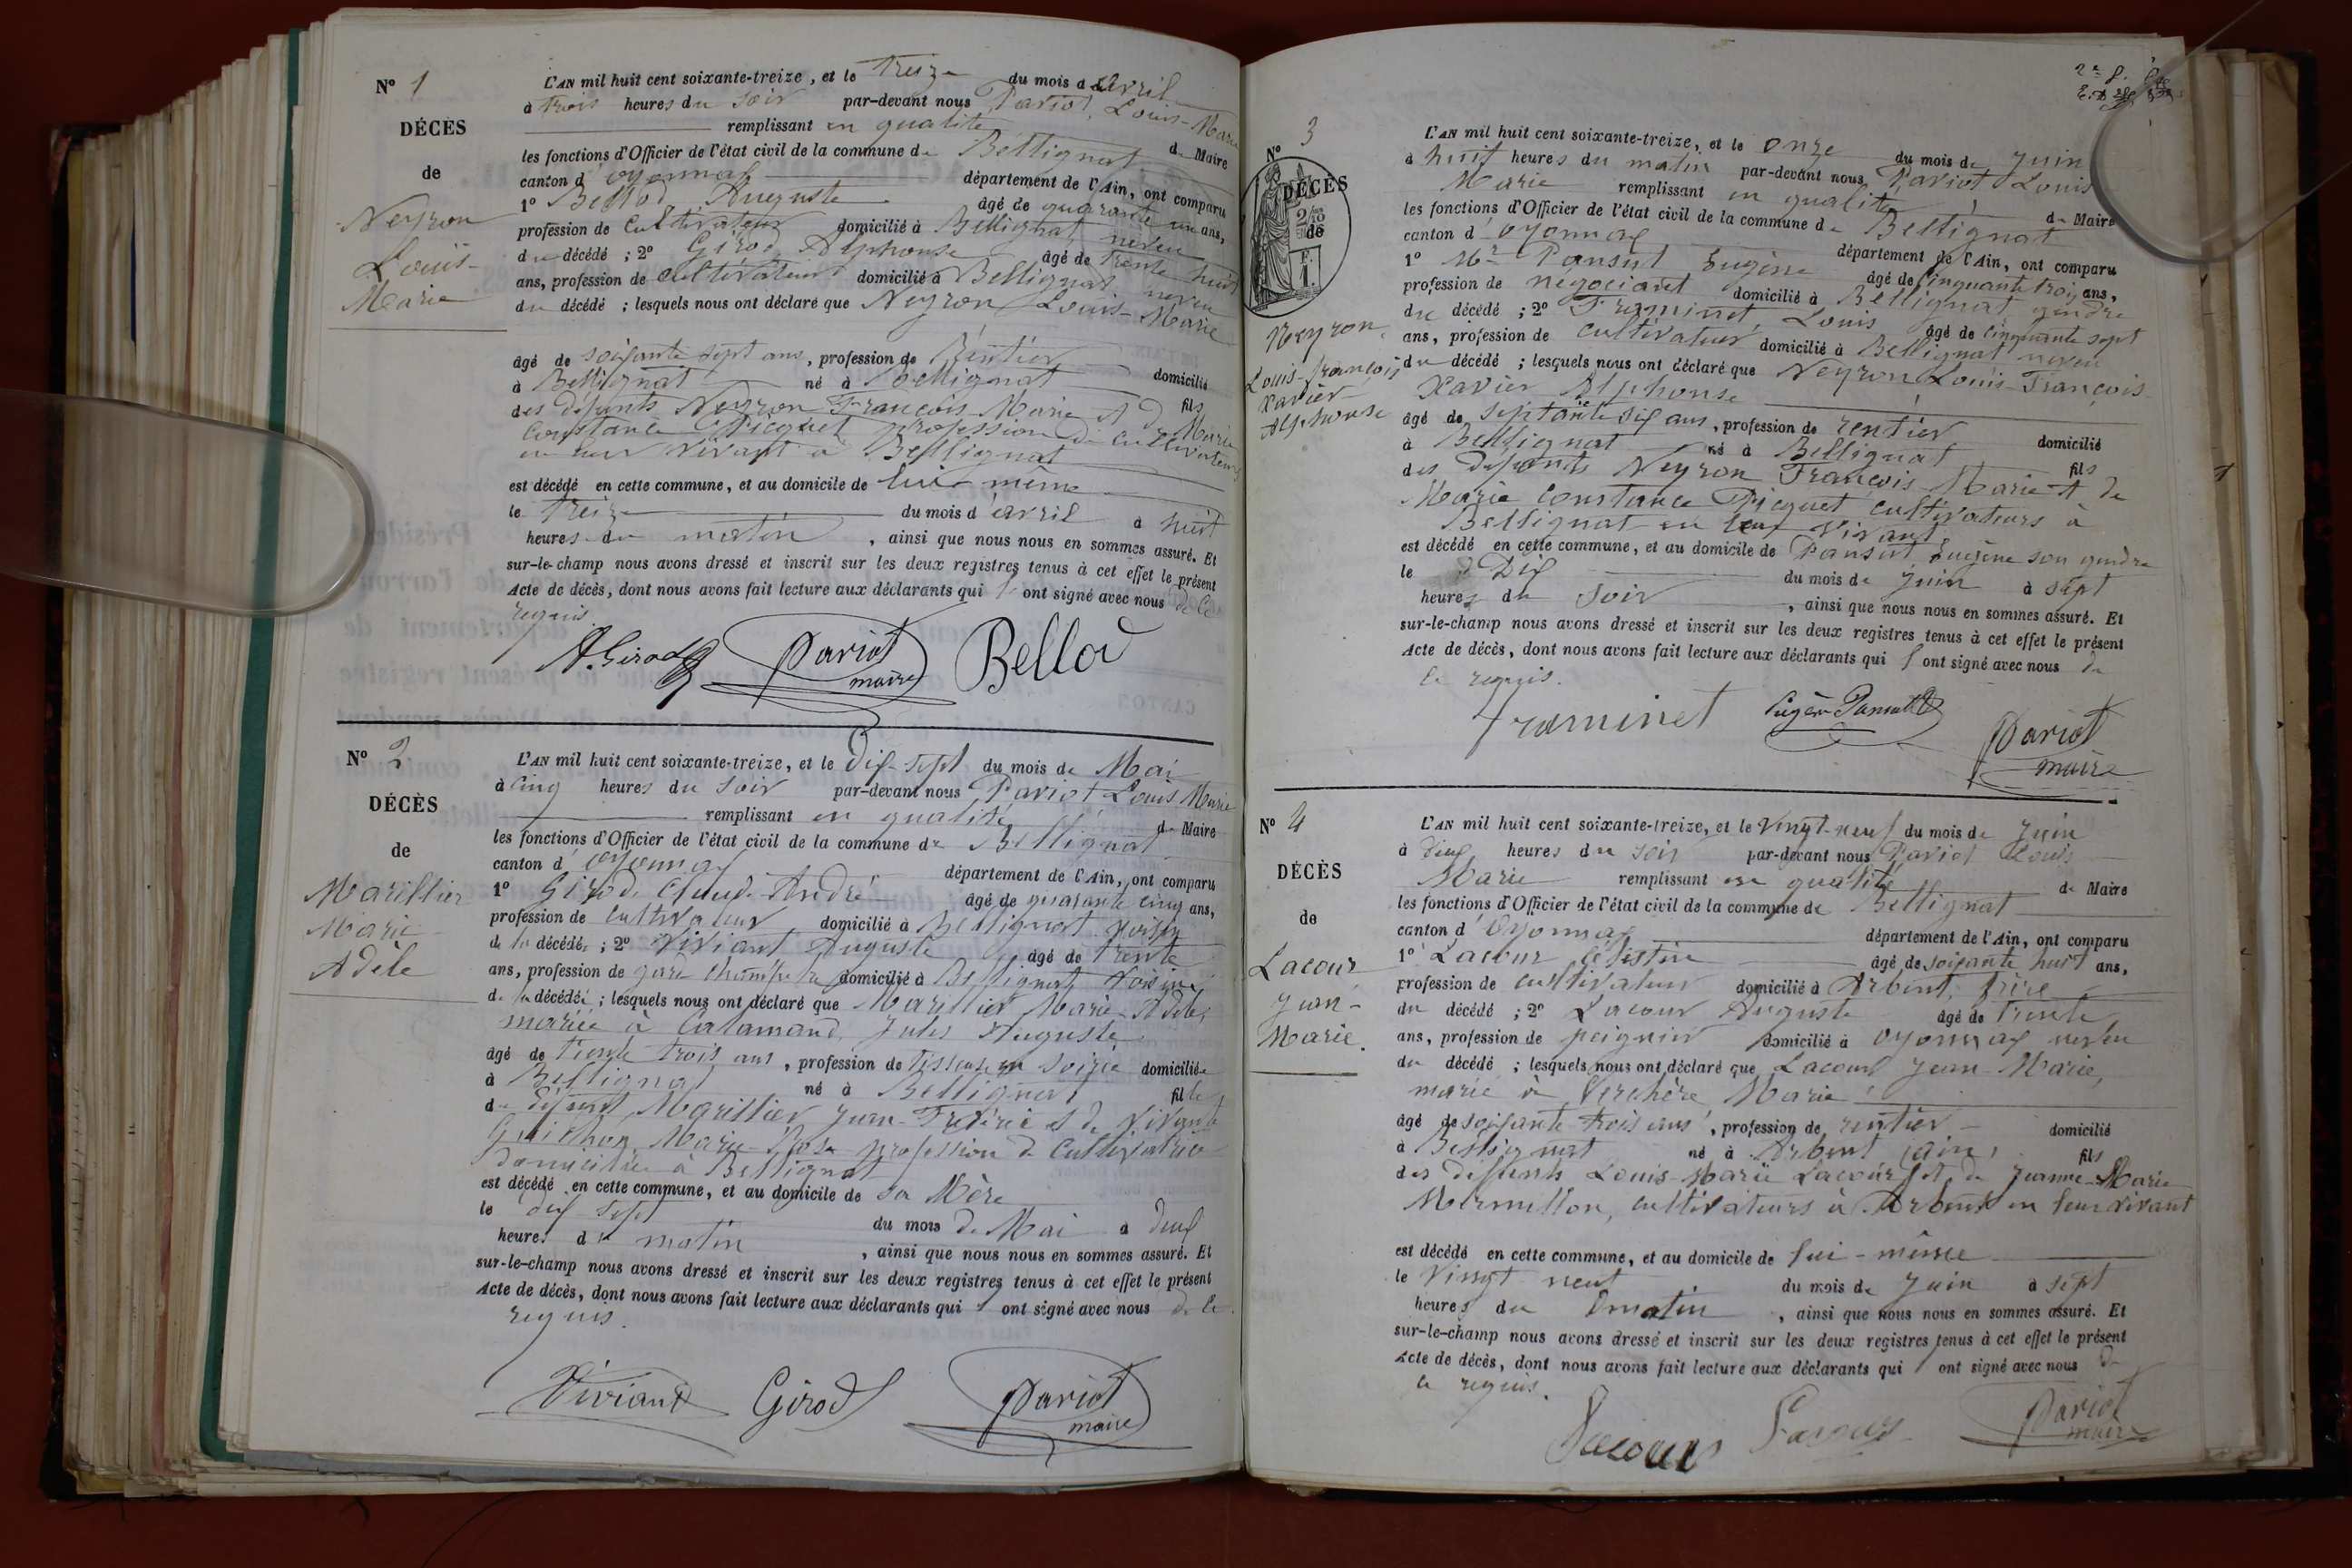 N° 1
DÉCÈS
de
Neyron
Louis-
Marie
L'AN mil huit cent soixante-treize, et le treize du mois d'avril
à trois heures du soir par-devant nous Pariot, Louis-Marie
remplissant en qualité de Maire
les fonctions d'Officier de l'état civil de la commune de Bellignat
canton d'oyonnax département de l'Ain, ont comparu
1° Bellod Auguste âgé de quarante un ans,
profession de Cultivateur domicilié à Bellignat, neveu
du décédé ; 2° Girod Alphonse âgé de trente huit
ans, profession de cultivateur domicilié à Bellignat neveu
du décédé ; lesquels nous ont déclaré que Neyron Louis-Marie
âgé de soixante sept ans, profession de Rentier
à Bellignat né à Bellignat domicilié
des défunts Neyron François Marie et de Marie fils
Constance Picquet profession de cultivateurs
en leur vivant à Bellignat
est décédé en cette commune, et au domicile de lui-même
le treize du mois d'avril à huit
heures du matin, ainsi que nous nous en sommes assuré. Et
sur-le-champ nous avons dressé et inscrit sur les deux registres tenus à cet effet le présent
Acte de décès, dont nous avons fait lecture aux déclarants qui l'ont signé avec nous de ce
requis.
A. Girod Pariot maire Bellod
N° 2
DÉCÈS
de
Marillier
Marie
Adèle
L'AN mil huit cent soixante-treize, et le dix-sept du mois de Mai
à cinq heures du soir par-devant nous Pariot Louis Marie
remplissant en qualité de Maire
les fonctions d'Officier de l'état civil de la commune de Bellignat
canton d'oyonnax département de l'Ain, ont comparu
1° Girod, Claude-André âgé de quarante cinq ans,
profession de cultivateur domicilié à Bellignat voisin
de la décédée ; 2° Viviant Auguste âgé de trente
ans, profession de garde champêtre domicilié à Bellignat voisin
de la décédée ; lesquels nous ont déclaré que Marillier Marie-Adèle,
mariée à Calamand, Jules Auguste
âgé de trente trois ans, profession de Tisseuse en soirie domiciliée
à Bellignat né à Bellignat fille
du défunt Marillier Jean-Frédéric et de vivante
Guichon Marie-Rose profession de Cultivatrice
domiciliée à Bellignat
est décédé en cette commune, et au domicile de sa Mère
le dix sept du mois de Mai à deux
heures du matin, ainsi que nous nous en sommes assuré. Et
sur-le-champ nous avons dressé et inscrit sur les deux registres tenus à cet effet le présent
Acte de décès, dont nous avons fait lecture aux déclarants qui ont signé avec nous de ce
requis.
Viviant Girod Pariot maire
N° 3
DÉCÈS
de
Neyron
Louis-françois
Xavier
Alphonse
L'AN mil huit cent soixante-treize, et le onze du mois de Juin
à huit heures du matin par-devant nous Pariot Louis
Marie remplissant en qualité de Maire
les fonctions d'Officier de l'état civil de la commune de Bellignat
canton d'oyonnax département de l'Ain, ont comparu
1° Mr Pansut Eugène âgé de cinquante trois ans,
profession de négociant domicilié à Bellignat gendre
du décédé ; 2° Framinet Louis âgé de cinquante sept
ans, profession de cultivateur domicilié à Bellignat neveu
du décédé ; lesquels nous ont déclaré que Neyron Louis-François
Xavier Alphonse
âgé de septante six ans, profession de rentier
à Bellignat né à Bellignat domicilié
des défunts Neyron François Marie et de fils
Marie Constance Picquet cultivateurs à
Bellignat en leur vivant
est décédé en cette commune, et au domicile de Pansut Eugène son gendre
le Dix du mois de Juin à sept
heures du soir, ainsi que nous nous en sommes assuré. Et
sur-le-champ nous avons dressé et inscrit sur les deux registres tenus à cet effet le présent
Acte de décès, dont nous avons fait lecture aux déclarants qui l'ont signé avec nous de
ce requis.
framinet Eugène Pansut Pariot
maire
N° 4
DÉCÈS
de
Lacour
Jean-
Marie.
L'AN mil huit cent soixante-treize, et le vingt-neuf du mois de Juin
à deux heures du soir par-devant nous Pariot Louis
Marie remplissant en qualité de Maire
les fonctions d'Officier de l'état civil de la commune de Bellignat
canton d'Oyonnax département de l'Ain, ont comparu
1° Lacour Célestin âgé de soixante huit ans,
profession de cultivateur domicilié à Arbent, frère
du décédé ; 2° Lacour Auguste âgé de trente
ans, profession de peignier domicilié à oyonnax neveu
du décédé ; lesquels nous ont déclaré que Lacour Jean-Marie,
marié à Verchère, Marie
âgé de soixante trois ans, profession de rentier domicilié
à Bellignat né à Arbent (Ain) fils
des défunts Louis-Marie Lacour et de Jeanne-Marie
Mermillon, cultivateurs à Arbent en leur vivant
est décédé en cette commune, et au domicile de lui-même
le vingt neuf du mois de Juin à sept
heures du matin, ainsi que nous nous en sommes assuré. Et
sur-le-champ nous avons dressé et inscrit sur les deux registres tenus à cet effet le présent
Acte de décès, dont nous avons fait lecture aux déclarants qui ont signé avec nous de
ce requis.
Lacour Lacour Pariot
maire